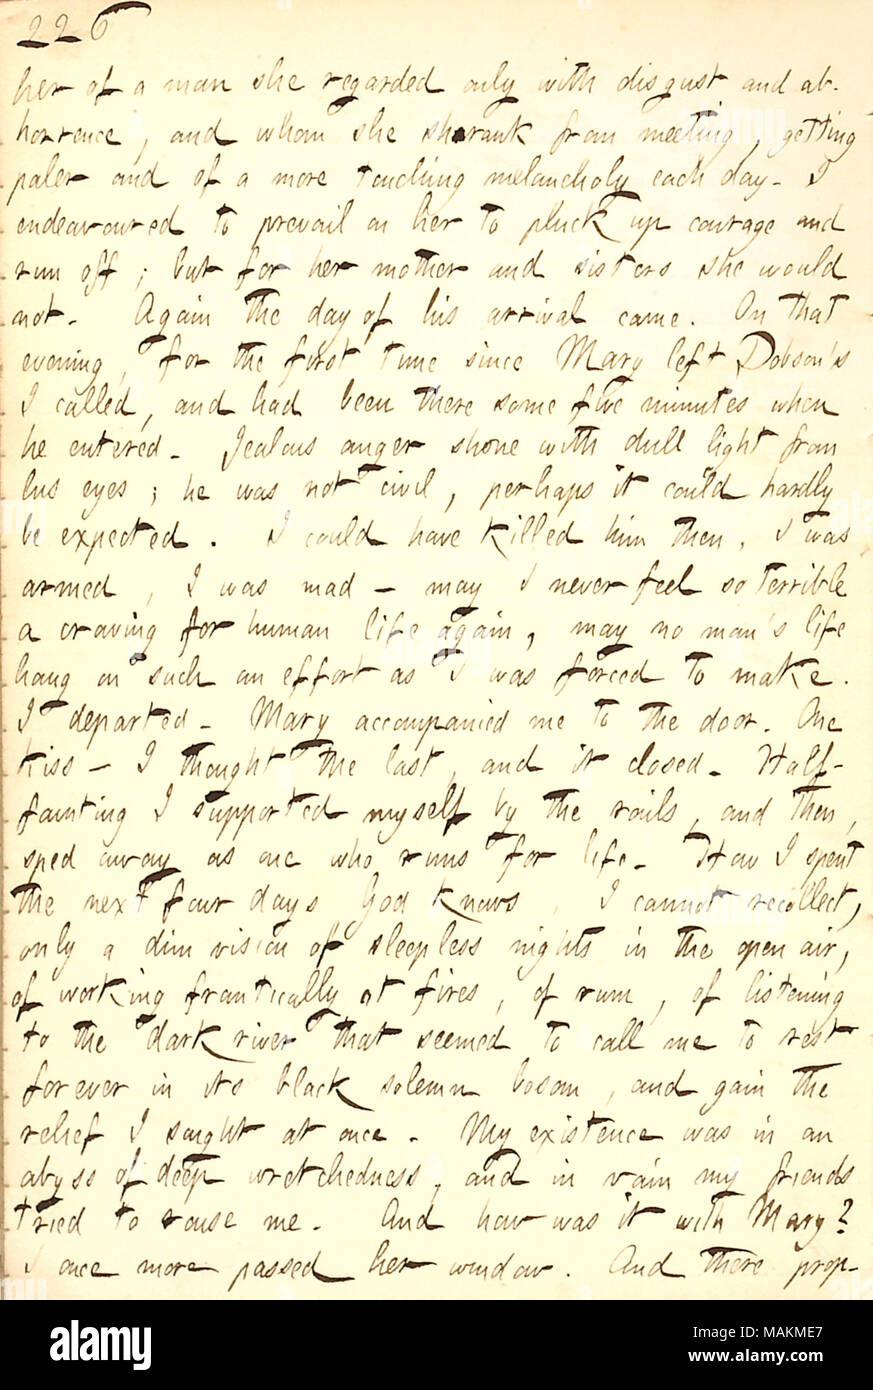 226
her of a man she regarded only with disgust and ab-
horrence, and whom she shrank from meeting, getting
paler and of a more touching melancholy each day. I
endeavoured to prevail on her to pluck up courage and
run off; but for her mother and sisters she would
not. Again the day of his arrival came. On that
evening, for the first time since Mary left Dobson's
I called, and had been there some five minutes when
he entered. Jealous anger shone with dull light from
his eyes; he was not civil, perhaps it could hardly
be expected. I could have killed him then, I was
armed, I was mad — may I never feel so terrible
a craving for human life again, may no man's life
hang on such an effort as I was forced to make.
I departed. Mary accompanied me to the door. One
kiss — I thought the last, and it closed. Half-
fainting I supported myself by the rails, and then,
sped away as one who runs for life. How I spent
the next four days God knows, I cannot recollect,
only a dim vision of sleepless nights in the open air,
of working frantically at fires, of rum, of listening
to the dark river that seemed to call me to rest
for ever in its black solemn bosom, and gain the
relief I sought at once. My existence was in an
abyss of deep wretchedness, and in vain my friends
tried to rouse me. And how was it with Mary?
I once more passed her window. And there prop-
alamy
Image ID: MAKME7
www.alamy.com